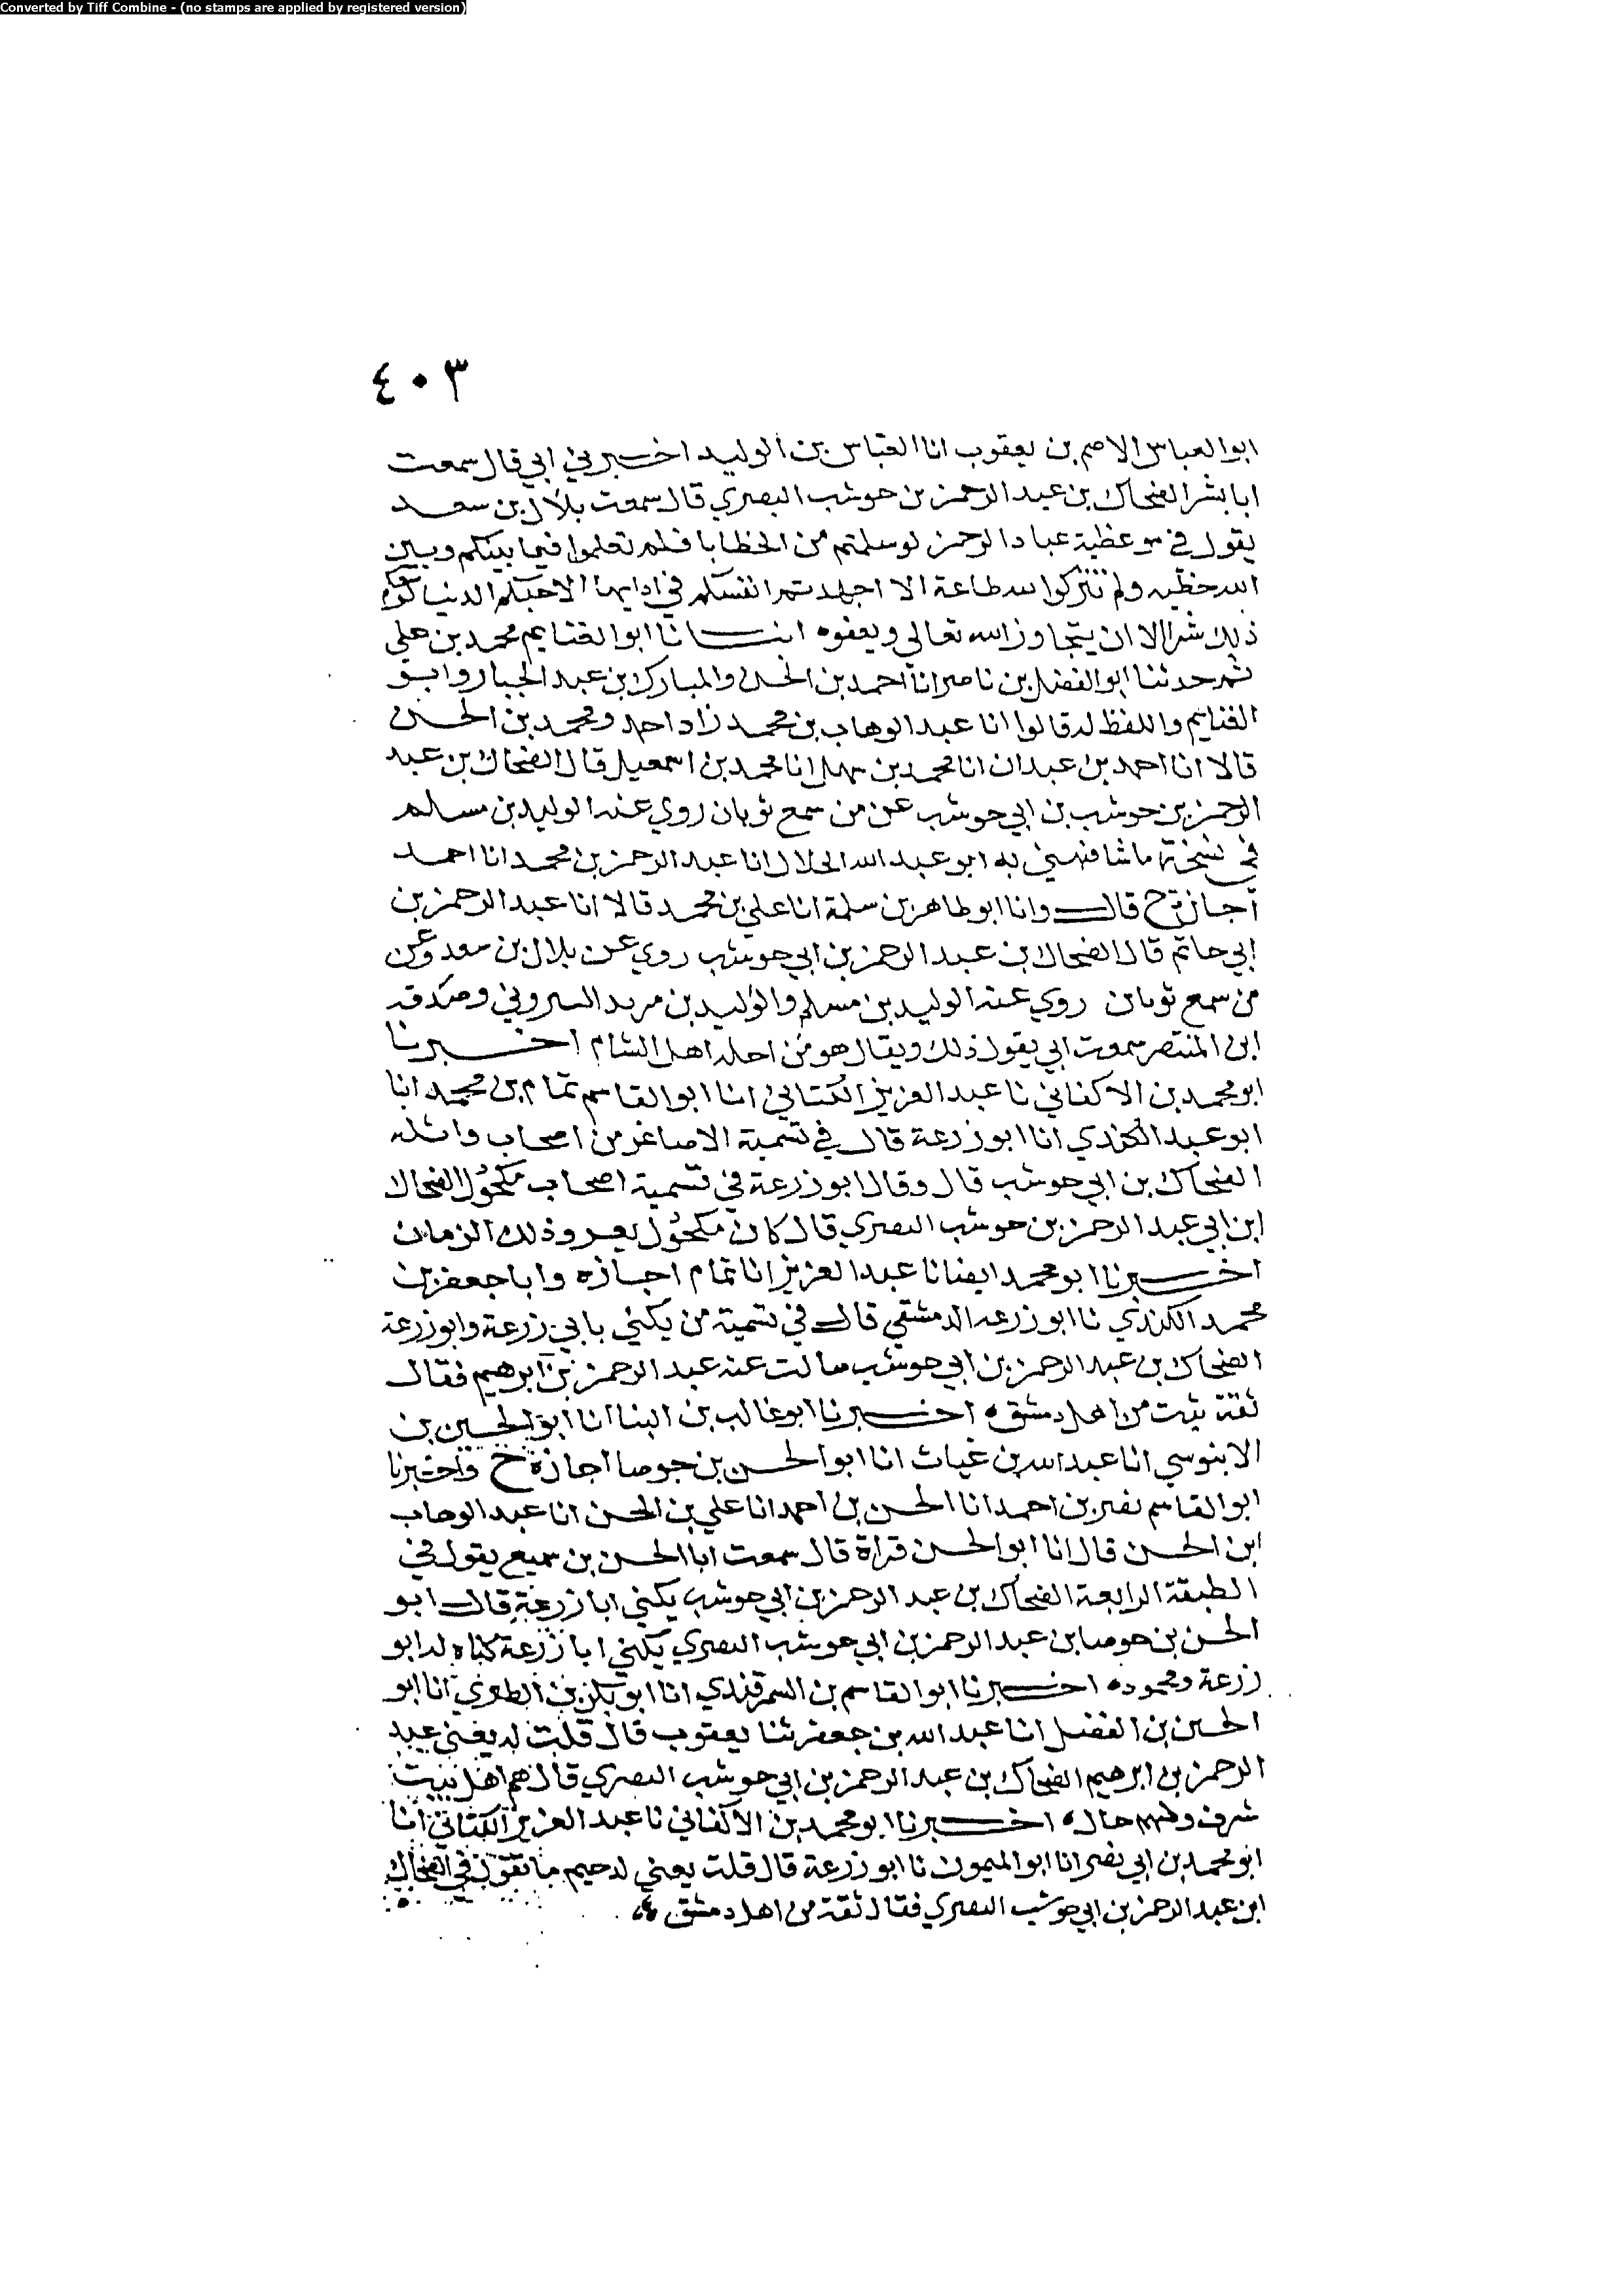 Converted by Tiff Combine - (no stamps are applied by registered version)
٤٠٣
ابو العباس الاصم بن يعقوب انا العباس بن الوليد اخبرني ابي قال سمعت
ابا بشر الضحاك بن عبد الرحمن بن حوشب البصري قال سمعت بلال بن سعد
يقول في موعظية عباد الرحمن لو سلمتم من الخطايا فلم تعلموا فيما بينكم وبين
الله خطيه ولم تتركوا لله طاعة الا اجهدتم انفسكم في ادايها الا حبكم الدنيا
ذلك شرا الا ان يتجاوز الله تعالى ويعفوه انبانا ابو الغنايم محمد بن علي
ثم حدثنا ابو الفضل بن ناصر انا احمد بن الحسن والمبارك بن عبد الجبار وابو
الغنايم واللفظ له قالوا انا عبد الوهاب بن محمد زاد احمد ومحمد بن الحسن
قالا انا احمد بن عبدان انا محمد بن سهل انا محمد بن اسمعيل قال الضحاك بن عبد
الرحمن بن حوشب بن ابي حوشب عن من سمع ثوبان روي عنه الوليد بن مسلم
في نسخة ما شافهني به ابو عبد الله الخلال انا عبد الرحمن بن محمد انا احمد
اجازة ح قال وانا ابو طاهر بن سلمة انا علي بن محمد قالا انا عبد الرحمن بن
ابي حاتم قال الضحاك بن عبد الرحمن بن ابي حوشب روي عن بلال بن سعد وعن
من سمع ثوبان روي عنه الوليد بن مسلم والوليد بن مريد البيروتي وصدقه
ابن المنتصر سمعت ابي يقول ذلك ويقال هو من اجلة اهل الشام اخبرنا
ابو محمد بن الاكفاني نا عبد العزيز الكتاني انا ابو القاسم تمام بن محمد انا
ابو عبد الكندي انا ابو زرعة قال في تسمية الاصاغر من اصحاب واثله
الضحاك بن ابي حوشب قال وقال ابو زرعة في تسمية اصحاب مكحول الضحاك
ابن ابي عبد الرحمن بن حوشب النصري قال كان مكحول يعر وذلك الزمان
اخبرنا ابو محمد ايضا نا عبد العزيز انا تمام اجازه وابا جعفر بن
محمد الكندي نا ابو زرعه الدمشقي قال في تسمية من يكني بابي زرعة وابو زرعة
الضحاك بن عبد الرحمن بن ابي حوشب سالت عنه عبد الرحمن بن ابرهيم فقال
ثقة ثبت من اهل دمشق ه اخبرنا ابو غالب بن البنا انا ابو الحسين بن
الابنوسي انا عبد الله بن غياث انا ابو الحسن بن جوصا اجازة ح واخبرنا
ابو القاسم نصر بن احمد انا الحسن بن احمد انا علي بن الحسن انا عبد الوهاب
ابن الحسن قال انا ابو الحسن قراة قال سمعت ابا الحسن بن سميع يقول في
الطبقة الرابعة الضحاك بن عبد الرحمن بن ابي حوشب يكني ابا زرعة قال ابو
الحسن بن جوصا بن عبد الرحمن بن ابي حوشب النصري يكني ابا زرعة كناه له ابو
زرعة ومحموده اخبرنا ابو القاسم بن السمرقندي انا ابو بكر بن الطبري انا ابو
الحسين بن الفضل انا عبد الله بن جعفر ثنا يعقوب قال قلت له يعني عبد
الرحمن بن ابرهيم الضحاك بن عبد الرحمن بن ابي حوشب النصري قال هم اهل بيت
شرف ولهم حاله اخبرنا ابو محمد بن الاكفاني نا عبد العزيز الكتاني انا
ابو محمد بن ابي نصر انا ابو الميمون نا ابو زرعة قال قلت يعني لدحيم ما تقول في الضحاك
ابن عبد الرحمن بن ابي حوشب النصري فقال ثقة من اهل دمشق